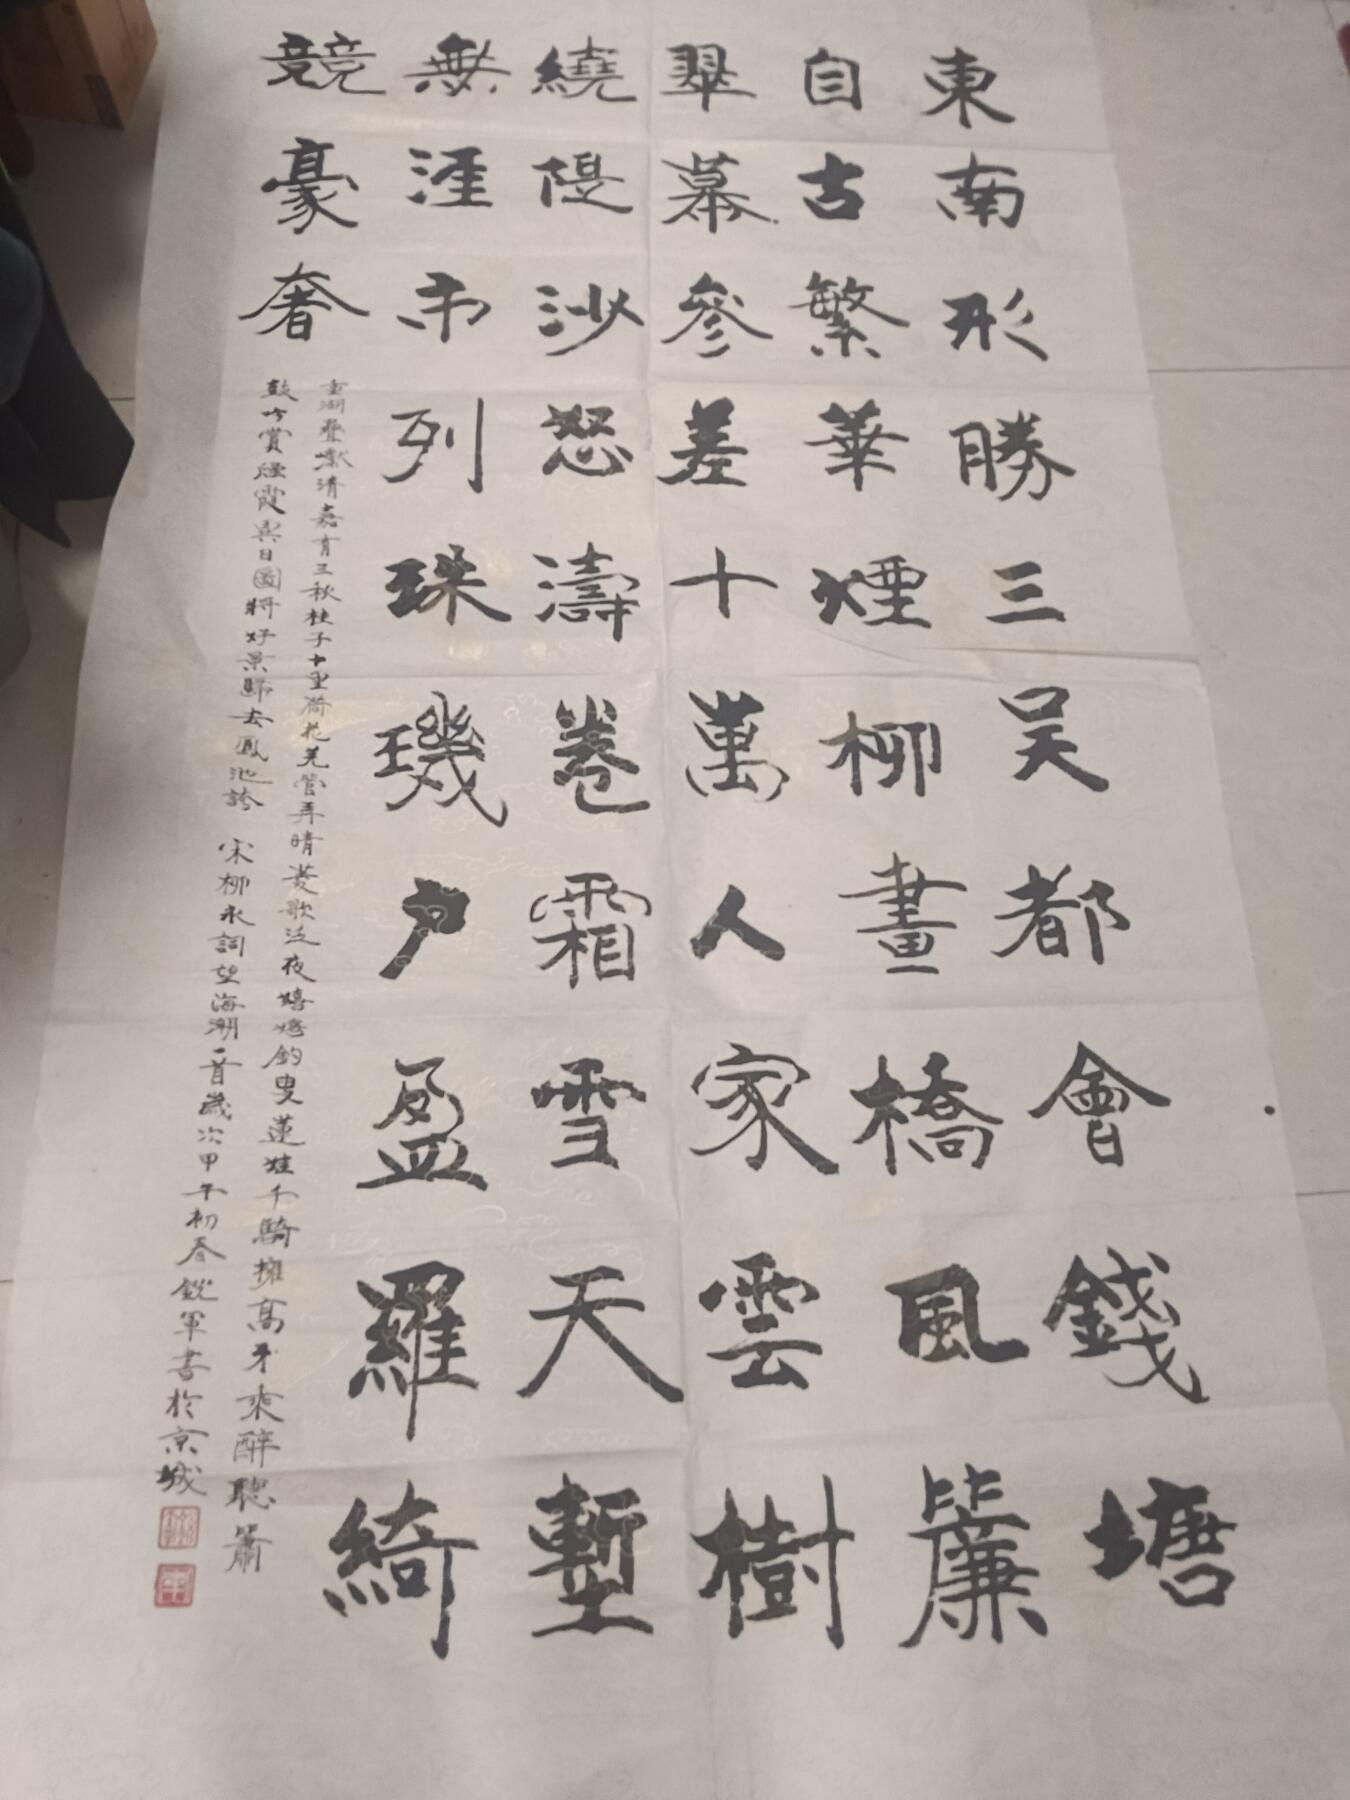 東南形勝三吴都會錢塘
自古繁華煙柳畫橋風簾
翠幕參差十萬人家雲樹
繞堤沙怒濤卷霜雪天塹
無涯市列珠璣户盈羅綺
競豪奢
重湖疊巘清嘉有三秋桂子十里荷花羌管弄晴菱歌泛夜嬉嬉釣叟蓮娃千騎擁高牙乘醉聽簫
鼓吟賞煙霞異日圖將好景歸去鳳池誇 宋柳永詞望海潮一首歲次甲午初春銳軍書於京城